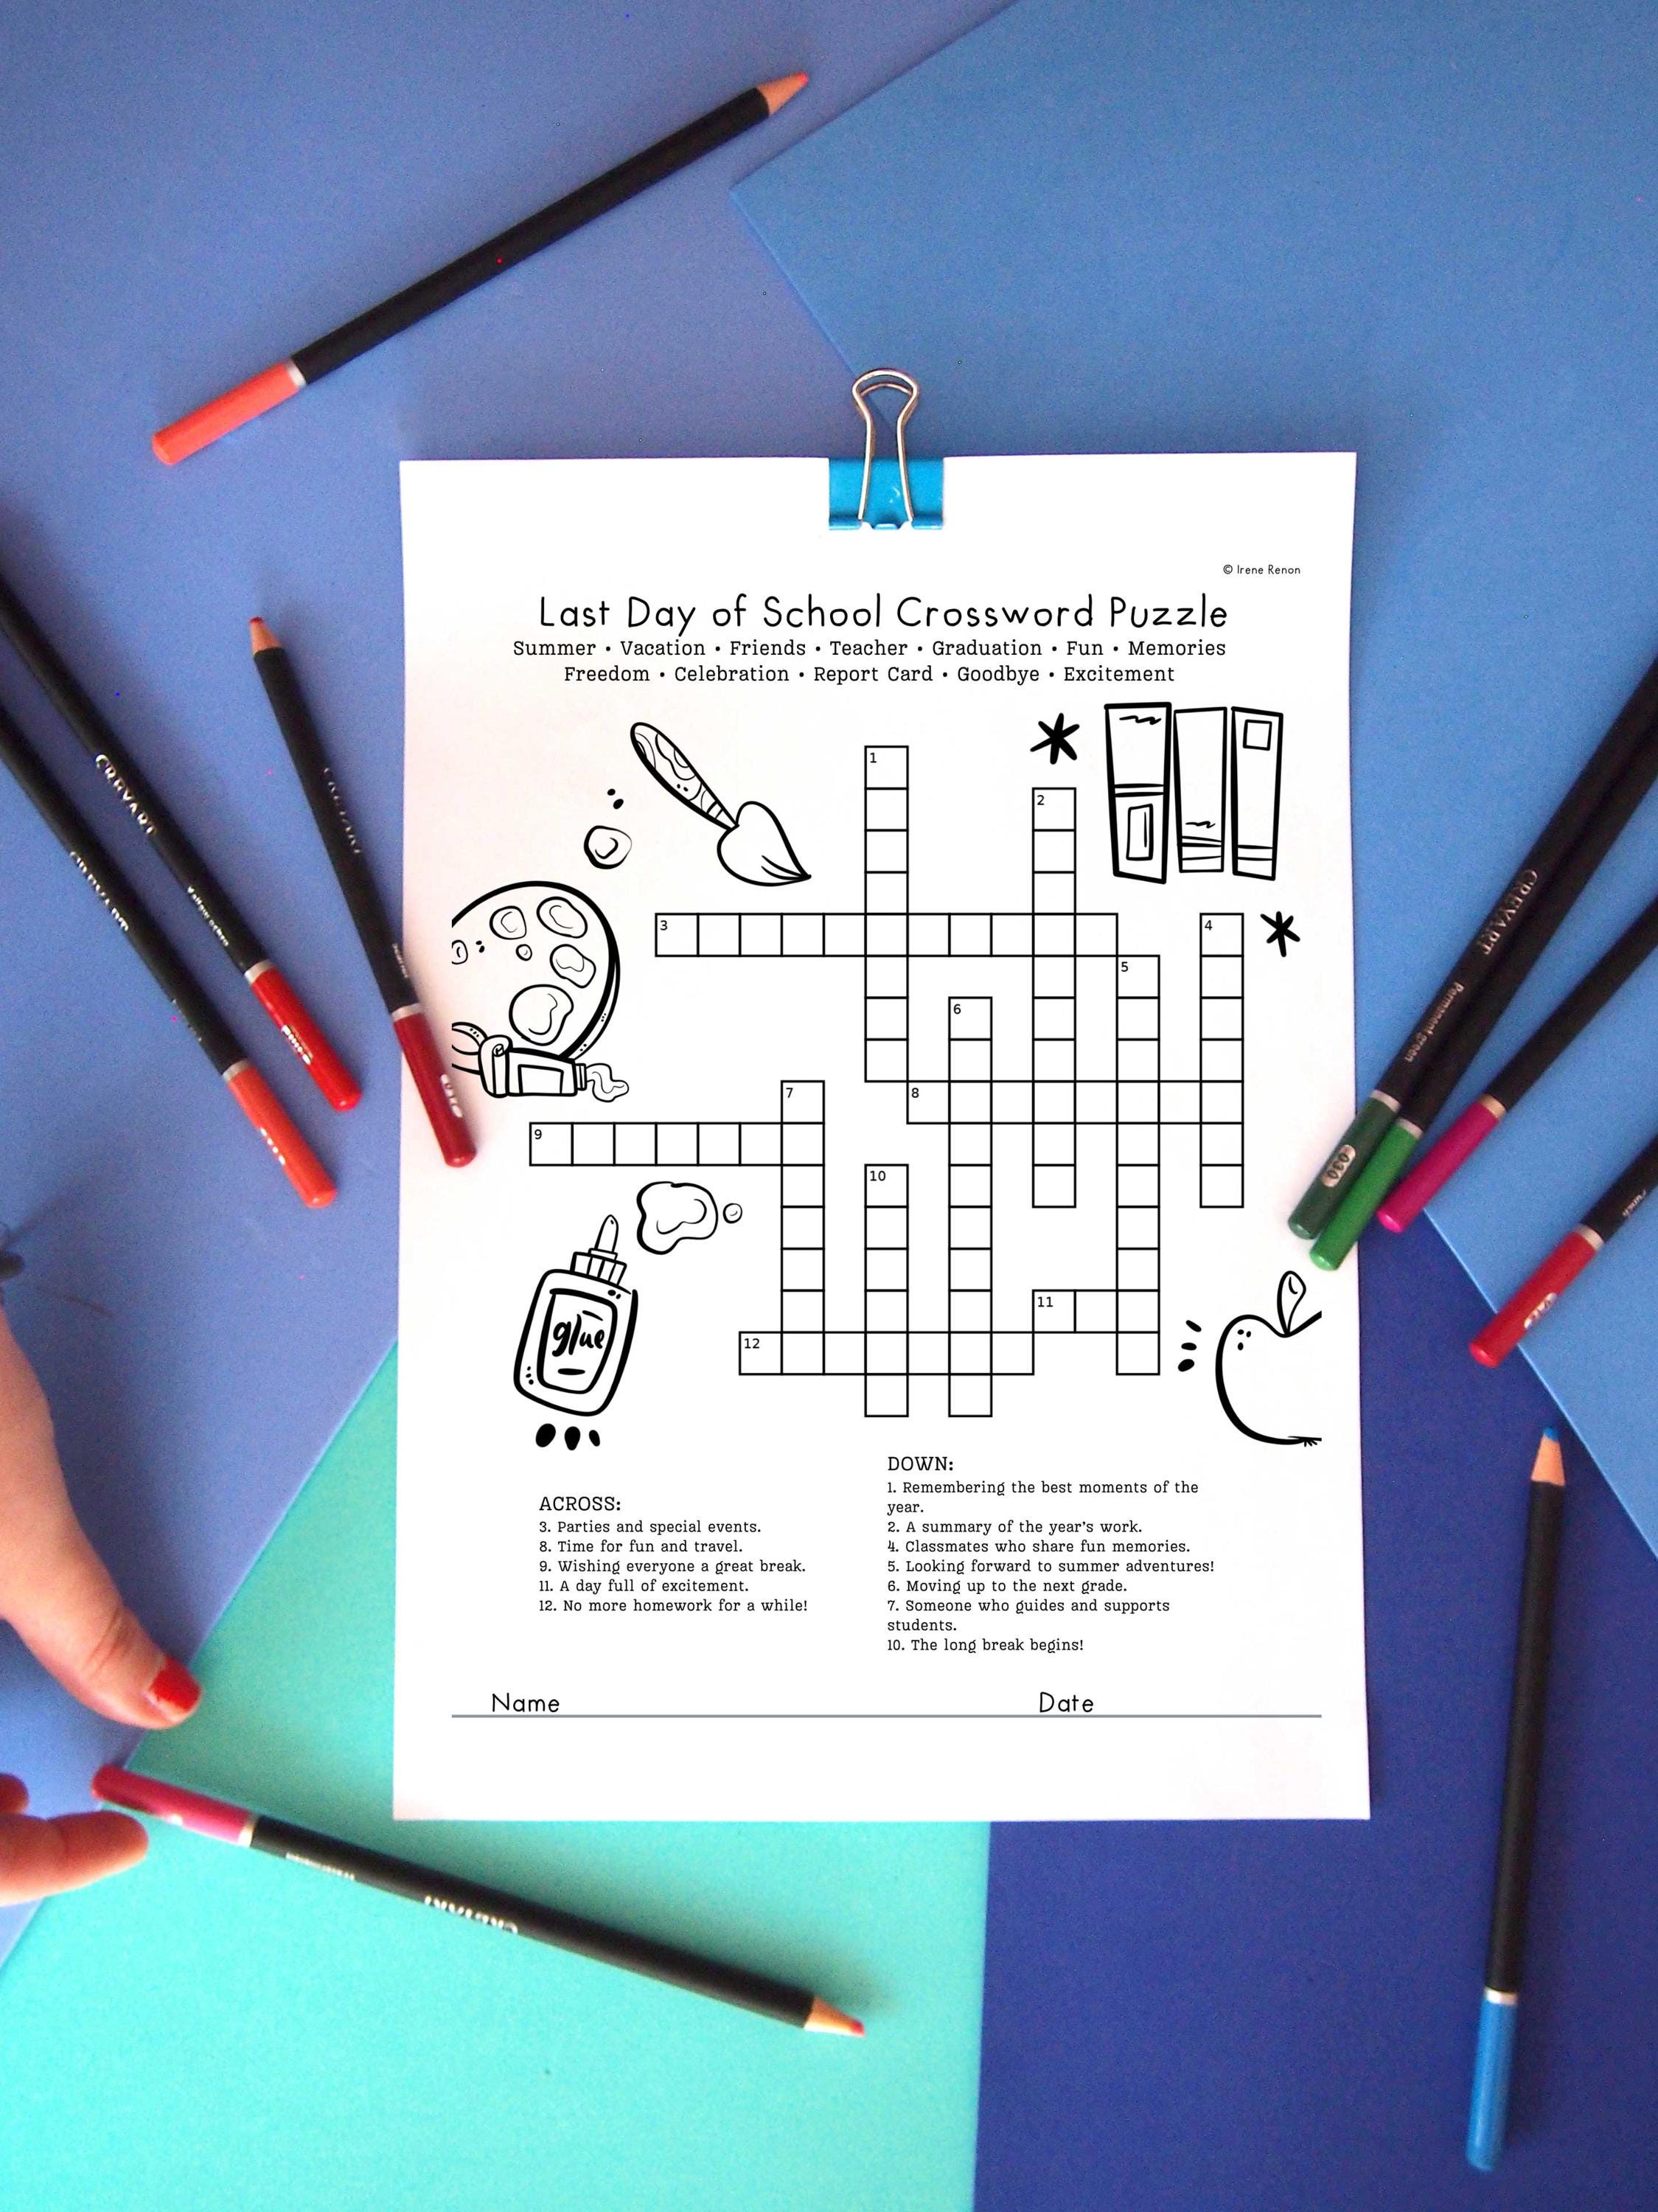 © Irene Renon
Last Day of School Crossword Puzzle
Summer • Vacation • Friends • Teacher • Graduation • Fun • Memories
Freedom • Celebration • Report Card • Goodbye • Excitement
1
2
3
4
5
6
7
8
9
10
11
12
glue
ACROSS:
3. Parties and special events.
8. Time for fun and travel.
9. Wishing everyone a great break.
11. A day full of excitement.
12. No more homework for a while!
DOWN:
1. Remembering the best moments of the
year.
2. A summary of the year's work.
4. Classmates who share fun memories.
5. Looking forward to summer adventures!
6. Moving up to the next grade.
7. Someone who guides and supports
students.
10. The long break begins!
Name
Date
CREVART
Yellow ochre
CREVART
CREVART
CREVART
Permanent green
030
CREVART